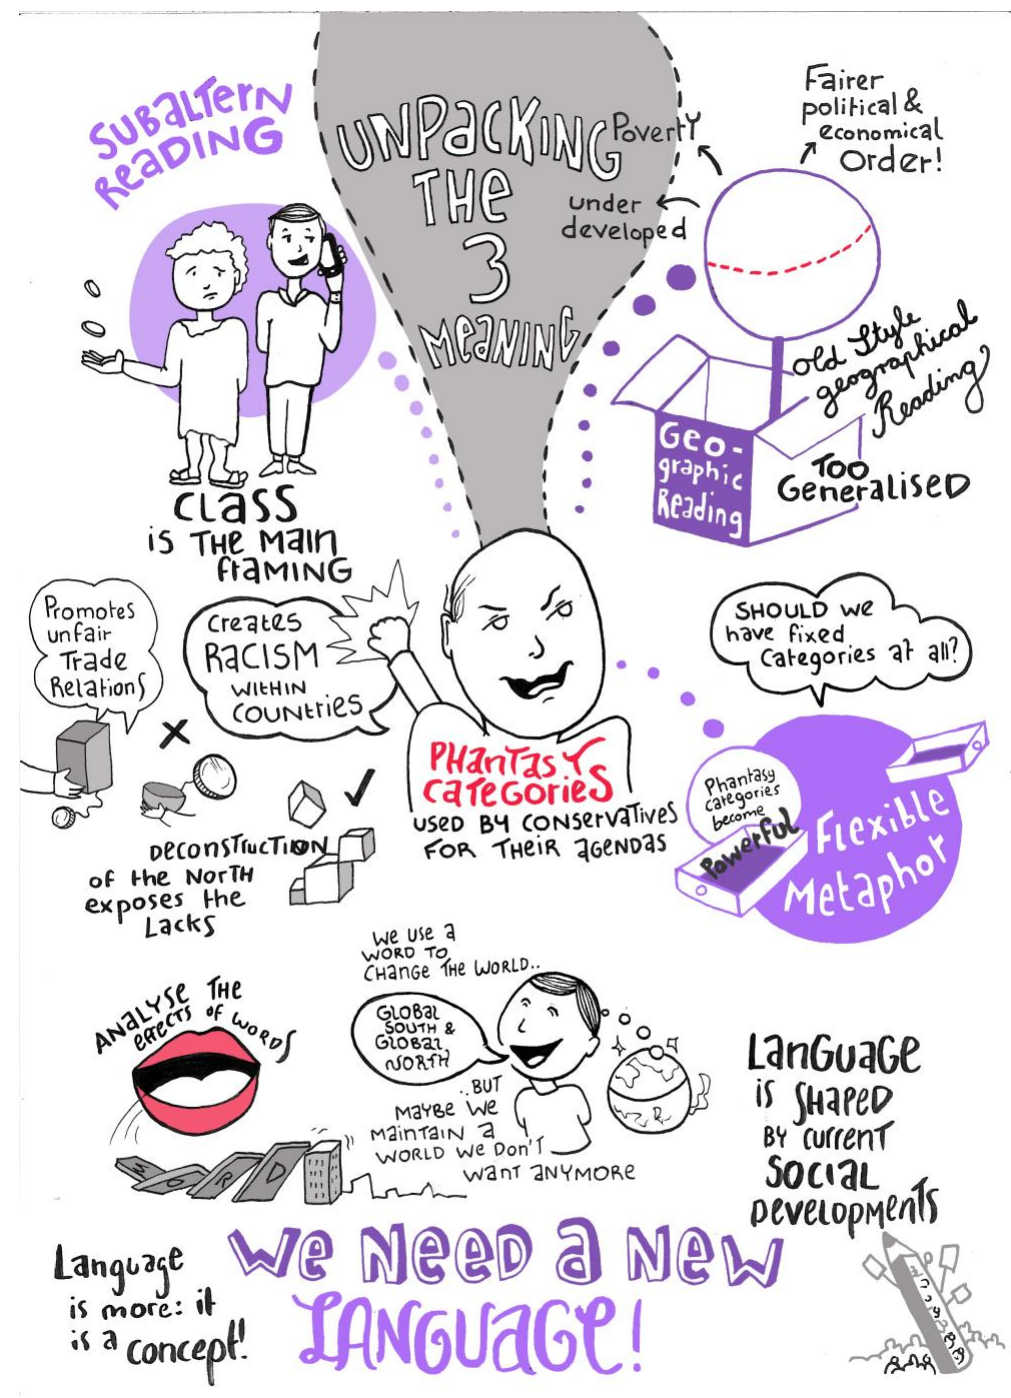 UNPACKING
THE
3
MEANING
SUBALTERN
READING
CLASS
IS THE MAIN
FRAMING
Poverty
under
developed
Fairer
political &
economical
Order!
Old Style
geographical
Reading
Geo-
graphic
Reading
TOO
GENERALISED
Promotes
unfair
Trade
Relations
Creates
RACISM
WITHIN
COUNTRIES
PHANTASY
CATEGORIES
USED BY CONSERVATIVES
FOR THEIR AGENDAS
SHOULD we
have fixed
Categories at all?
Phantasy
categories
become
Powerful
Flexible
Metaphor
DECONSTRUCTION
of the NORTH
exposes the
Lacks
WE USE A
WORD TO
CHANGE THE WORLD..
GLOBAL
SOUTH &
GLOBAL
NORTH
..BUT
MAYBE WE
MAINTAIN A
WORLD WE DON'T
WANT ANYMORE
ANALYSE THE
EFFECTS OF WORDS
WORD
LANGUAGE
IS SHAPED
BY CURRENT
SOCIAL
DEVELOPMENTS
Language
is more: it
is a concept!
WE NEED A NEW
LANGUAGE!